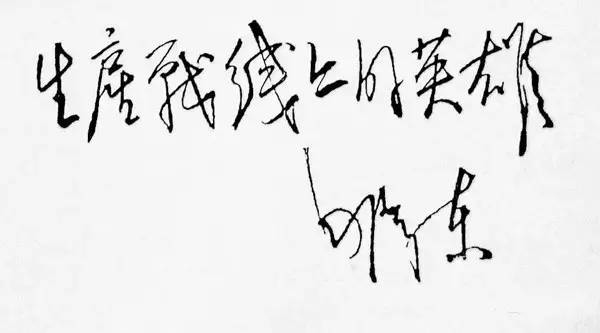 生產戰綫上的英雄
毛澤東